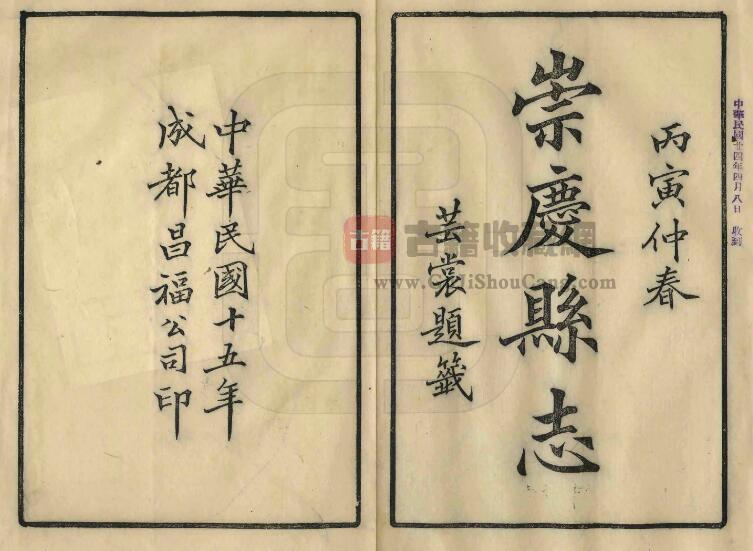 中華民國廿四年四月八日 收到
丙寅仲春
崇慶縣志
芸裳題籤
中華民國十五年
成都昌福公司印
古籍
古籍收藏網
www.GuJiShouCang.com